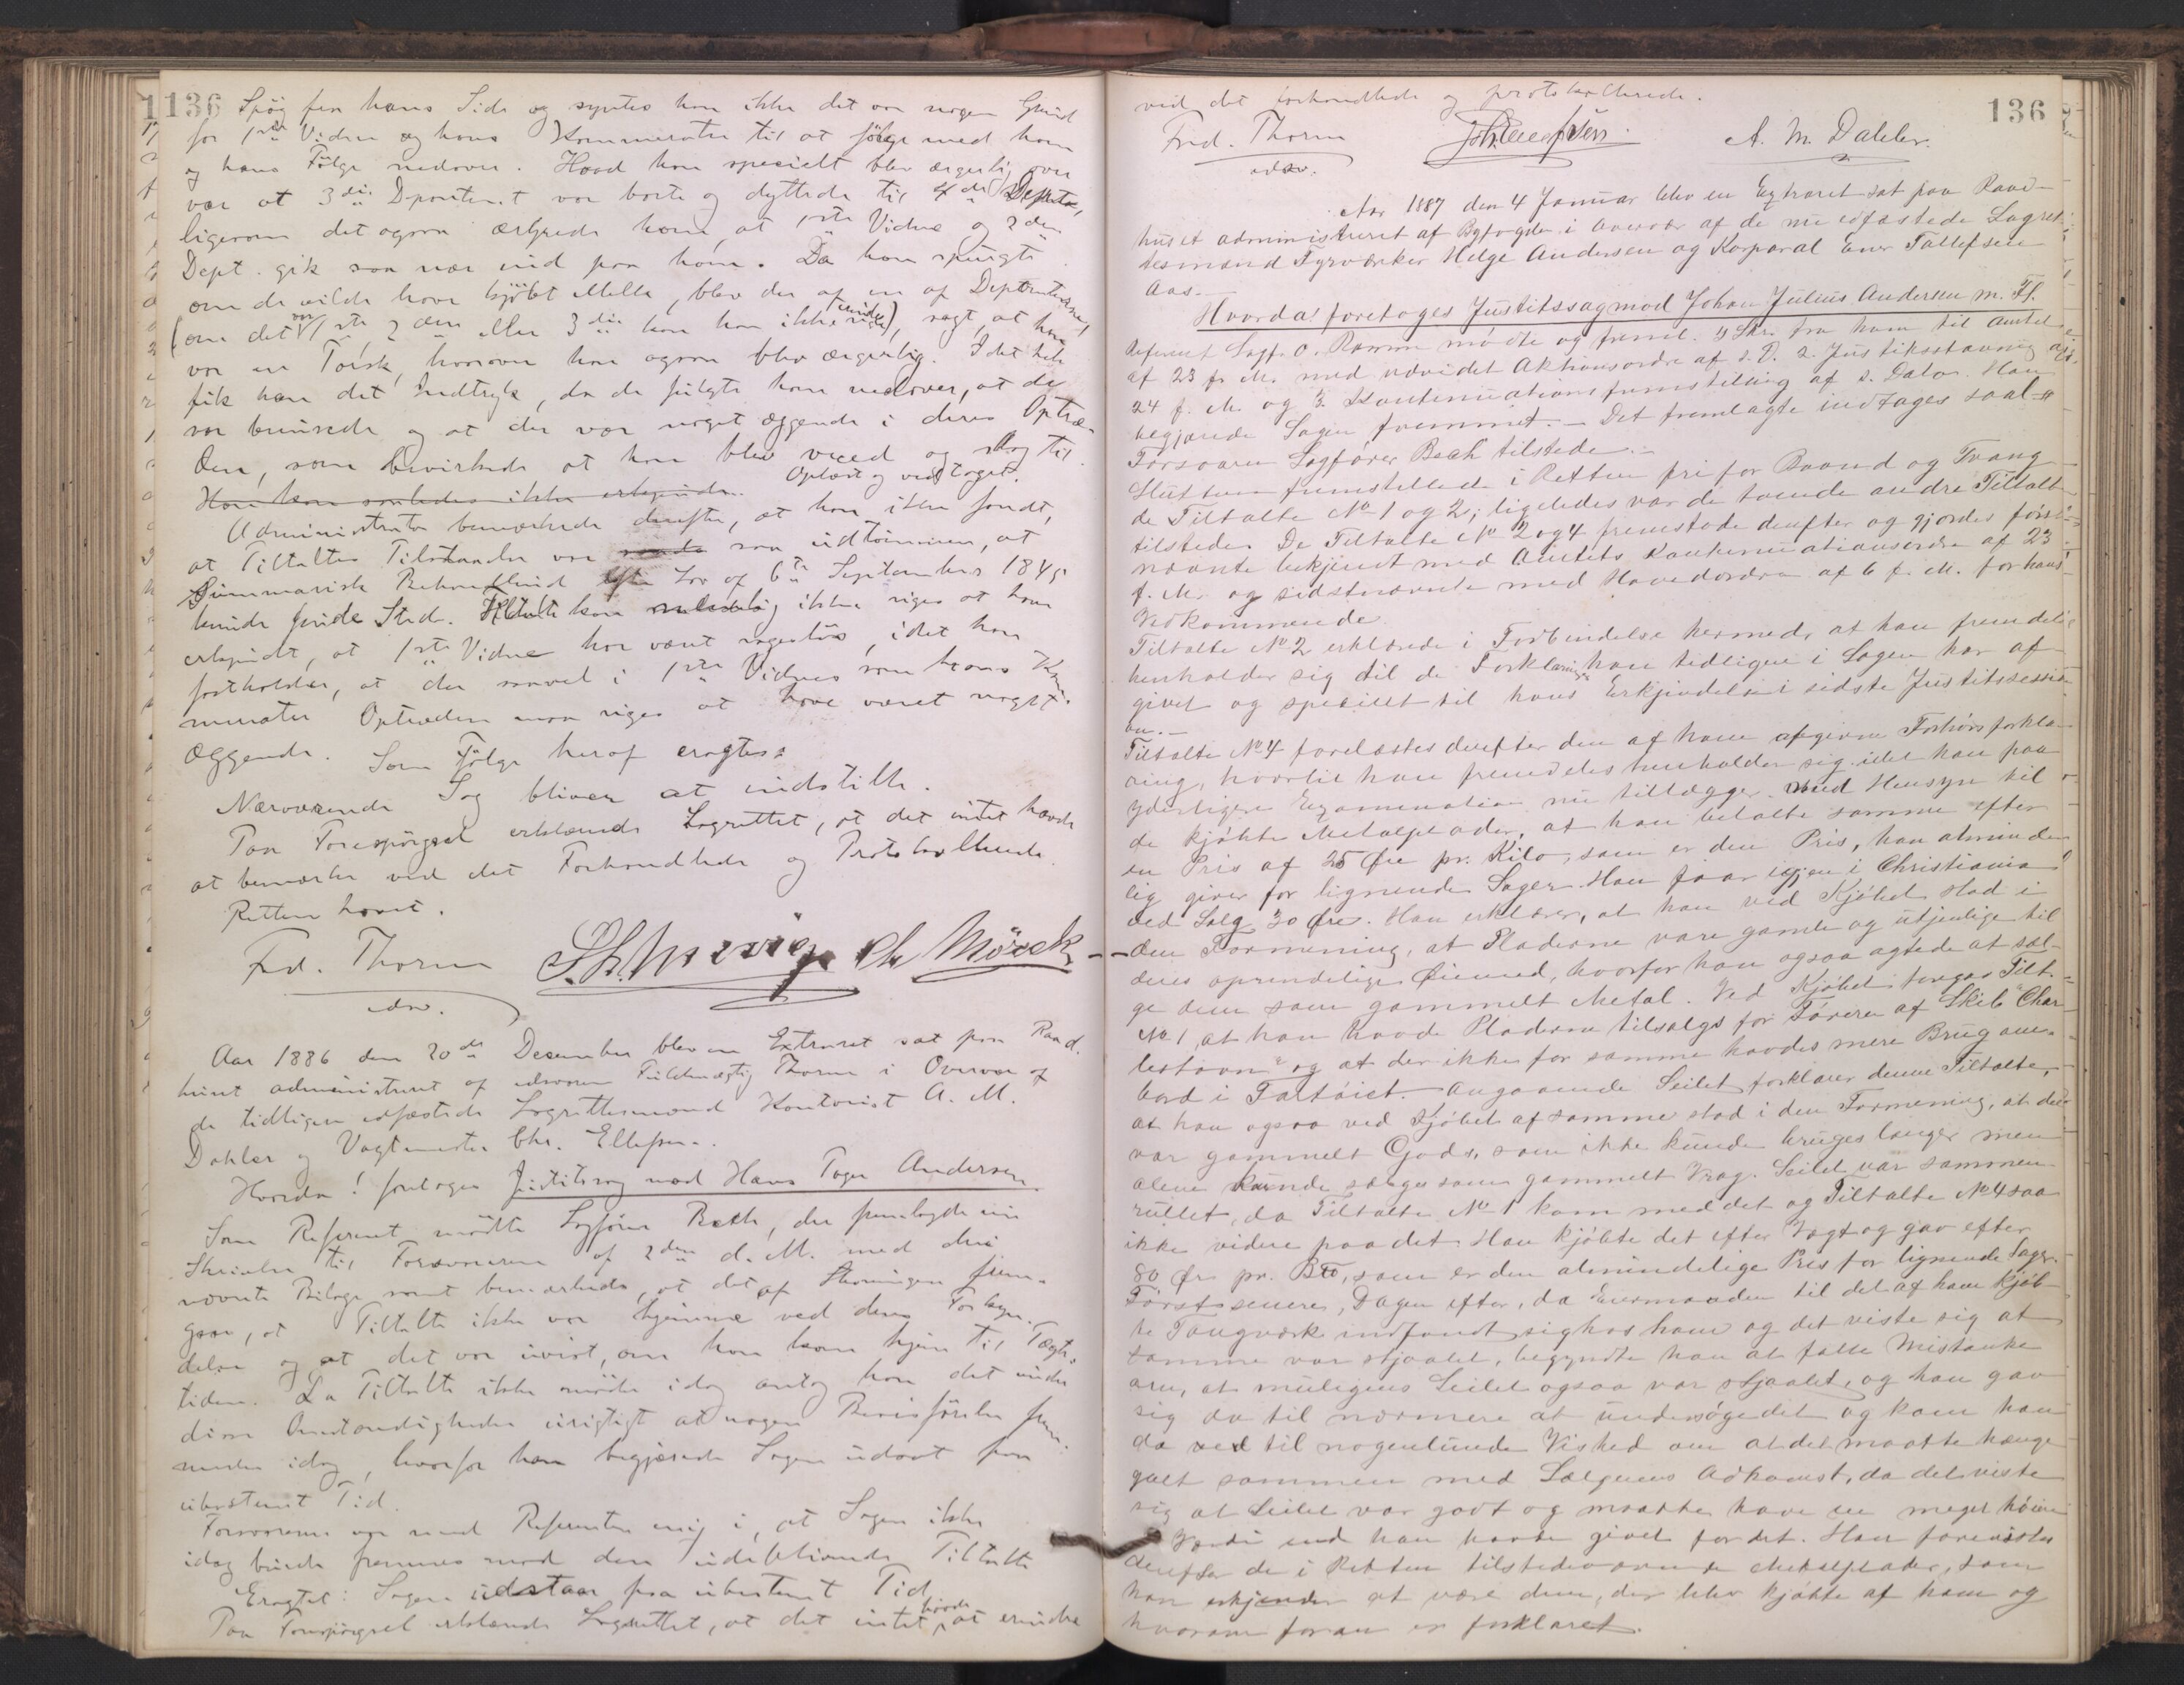 136
Spøg fra hans Side og syntes han ikke det var nogen Grund
for 1ste Vidne og hans Kammerater til at følge med ham
og hans Følge nedover. Hvad han specielt blev ærgerlig over
var at 3die Deponent var borte og dyttede til 4de Deptn,
ligesom det ogsaa ærgrede ham, at 1ste Vidne og 2den
Dept. gik saa nær ind paa ham. Da han spurgte
om de vilde have kjøbt Mella, blev der af en af Deptnterne,
(om det var 1ste, 2den eller 3die kan han ikke erindre), sagt, at han
var en Torsk, hvorover han ogsaa blev ærgerlig. I det hele
fik han det Indtryk, da de fulgte ham nedover, at de
var berusede og at der var noget æggende i deres Optræ-
den, som bevirkede at han blev vred og slog til.
Han kan saaledes ikke erkjende. Oplæst og vedtaget.
Administrator bemærkede derefter, at han ikke fandt,
at Tiltaltes Tilstaaelse var saa udtømmende, at
Summarisk Behandling efter Lov af 6te September 1845
kunde finde Sted. Tiltalte kan ikke siges at have
erkjendt, at 1ste Vidne har været sagesløs, idet han
fastholder, at der saavel i 1ste Vidnes som hans Kam-
merater Optræden maa siges at have været noget
æggende. Som Følge heraf eragtes:
Nærværende Sag bliver at indstille.
Paa Forespørgsel erklærede Lagrettet, at det intet havde
at bemærke ved det Forhandlede og Protokollerede.
Retten hævet.
Frd. Thorm Ch Mørck
edsv.
Aar 1886 den 20de December blev en Extraret sat paa Raad-
huset administreret af edsvoren Fuldmægtig Thorm i Overvær af
de tidligere edfæstede Lagrettesmænd Kontorist A. M.
Dahler og Vagtmester Chr. Ellefsen.
Hvorda! foretoges Justitssag mod Hans Tager Andersen.
Som Referent mødte Sagfører Beck, der fremlagde sin
Skrivelse til Forsvareren af 2den d. M. med deri
nævnte Bilage samt bemærkede, at det af Stævningen frem-
gaar, at Tiltalte ikke var hjemme ved dens Forkyn-
delse og at det var uvist, om han kom hjem til Tægte-
tiden. Da Tiltalte ikke møder idag antog han det under
disse Omstændigheder urigtigt at nogen Bevisførelse frem-
medes idag, hvorfor han begjærede Sagen udsat paa
ubestemt Tid.
Forsvareren var med Referenten enig i, at Sagen ikke
idag burde fremmes mod den udeblivende Tiltalte
Eragtet: Sagen udstaar paa ubestemt Tid
Paa Forespørgsel erklærede Lagrettet, at det intet havde at erindre
136
ved det forhandlede og protokollerede.
Frd. Thorm A. M. Dahler.
edsv.
Aar 1887 den 4 Januar blev en Extraret sat paa Raad-
huset administreret af Byfogden i Overvær af de nu edfæstede Lagret-
tesmænd Fyrværker Helge Andersen og Korporal Ener Tallefsen
Aas.
Hvorda! foretoges Justitssag mod Johan Julius Andersen m. Fl.
Referent Sagf. O. Ramm mødte og freml. 1) Skr. fra ham til Amtet
af 23 f. M. med udvidet Aktionsordre af s. D. 2. Justitsstævning af
24 f. M. og 3. Kontinuationsfremstilling af s. Dato. Han
begjærede Sagen fremmet. – Det fremlagte indtages saal. #
Forsvaren Sagfører Bech tilstede. –
Sluttens fremstillede i Retten fri for Baand og Tvang
de Tiltalte No 1 og 2; ligeledes var de tvende andre Tiltalte
tilstede. De Tiltalte No 2 og 4 fremstode derefter og gjordes først-
nævnte bekjendt med Amtets Kontinuationsordre af 23
f. M. og sidstnævnte med Hovedordren af 6 f. M. for hans
Vedkommende.
Tiltalte No 2 erklærede i Forbindelse hermed, at han fremdeles
henholder sig til de Forklaringer han tidligere i Sagen har af-
givet og specielt til hans Erkjendelse i sidste Justitssessi-
on. –
Tiltalte No 4 forelæstes derefter den af ham afgivne Forhørsforkla-
ring, hvortil han fremdeles henholder sig idet han paa
yderligere Examination nu tillægger med Hensyn til
de kjøbte Metalplader, at han betalte samme efter
en Pris af 25 Øre pr. Kilo, som er den Pris, han alminde-
lig giver for lignende Sager. Han faar igjen i Christiania
ved Salg 30 Øre. Han erklærer, at han ved Kjøbet stod i
den Formening, at Pladerne vare gamle og utjenlige til
deres oprindelige Øiemed, hvorfor han ogsaa agtede at sæl-
ge dem som gammelt Metal. Ved Kjøbet foregav Tilt.
No 1, at han havde Pladerne tilsalgs for Føreren af Skib "Char-
lestown" og at der ikke for samme havdes mere Brug om-
bord i Fartøiet. Angaaende Seilet forklarer denne Tiltalte,
at han ogsaa ved Kjøbet af samme stod i den Formening, at det
var gammelt Gods, som ikke kunde bruges længer men
alene kunde sælges som gammelt Vrag. Seilet var sammen-
rullet, da Tiltalte No 1 kom med det og Tiltalte No 4 saa
ikke videre paa det. Han kjøbte det efter Vægt og gav efter
80 Øre pr. B℔, som er den almindelige Pris for lignende Sager.
Først senere, Dagen efter, da Eiermanden til det af ham kjøb-
te Tougværk indfandt sig hos ham og det viste sig at
samme var stjaalet, begyndte han at fatte Mistanke
om, at muligens Seilet ogsaa var stjaalet, og han gav
sig da til nærmere at undersøge det og kom han
da ved til nogenlunde Vished om at det maatte hænge
galt sammen med Sælgerens Adkomst, da det viste
sig at Seilet var godt og maatte have en meget høiere
Værdi end han havde givet for det. Han forevistes
derefter de i Retten tilstedeværende Metalplader, som
han erkjender at være dem, der blev kjøbte af ham og
hvorom foran er forklaret.